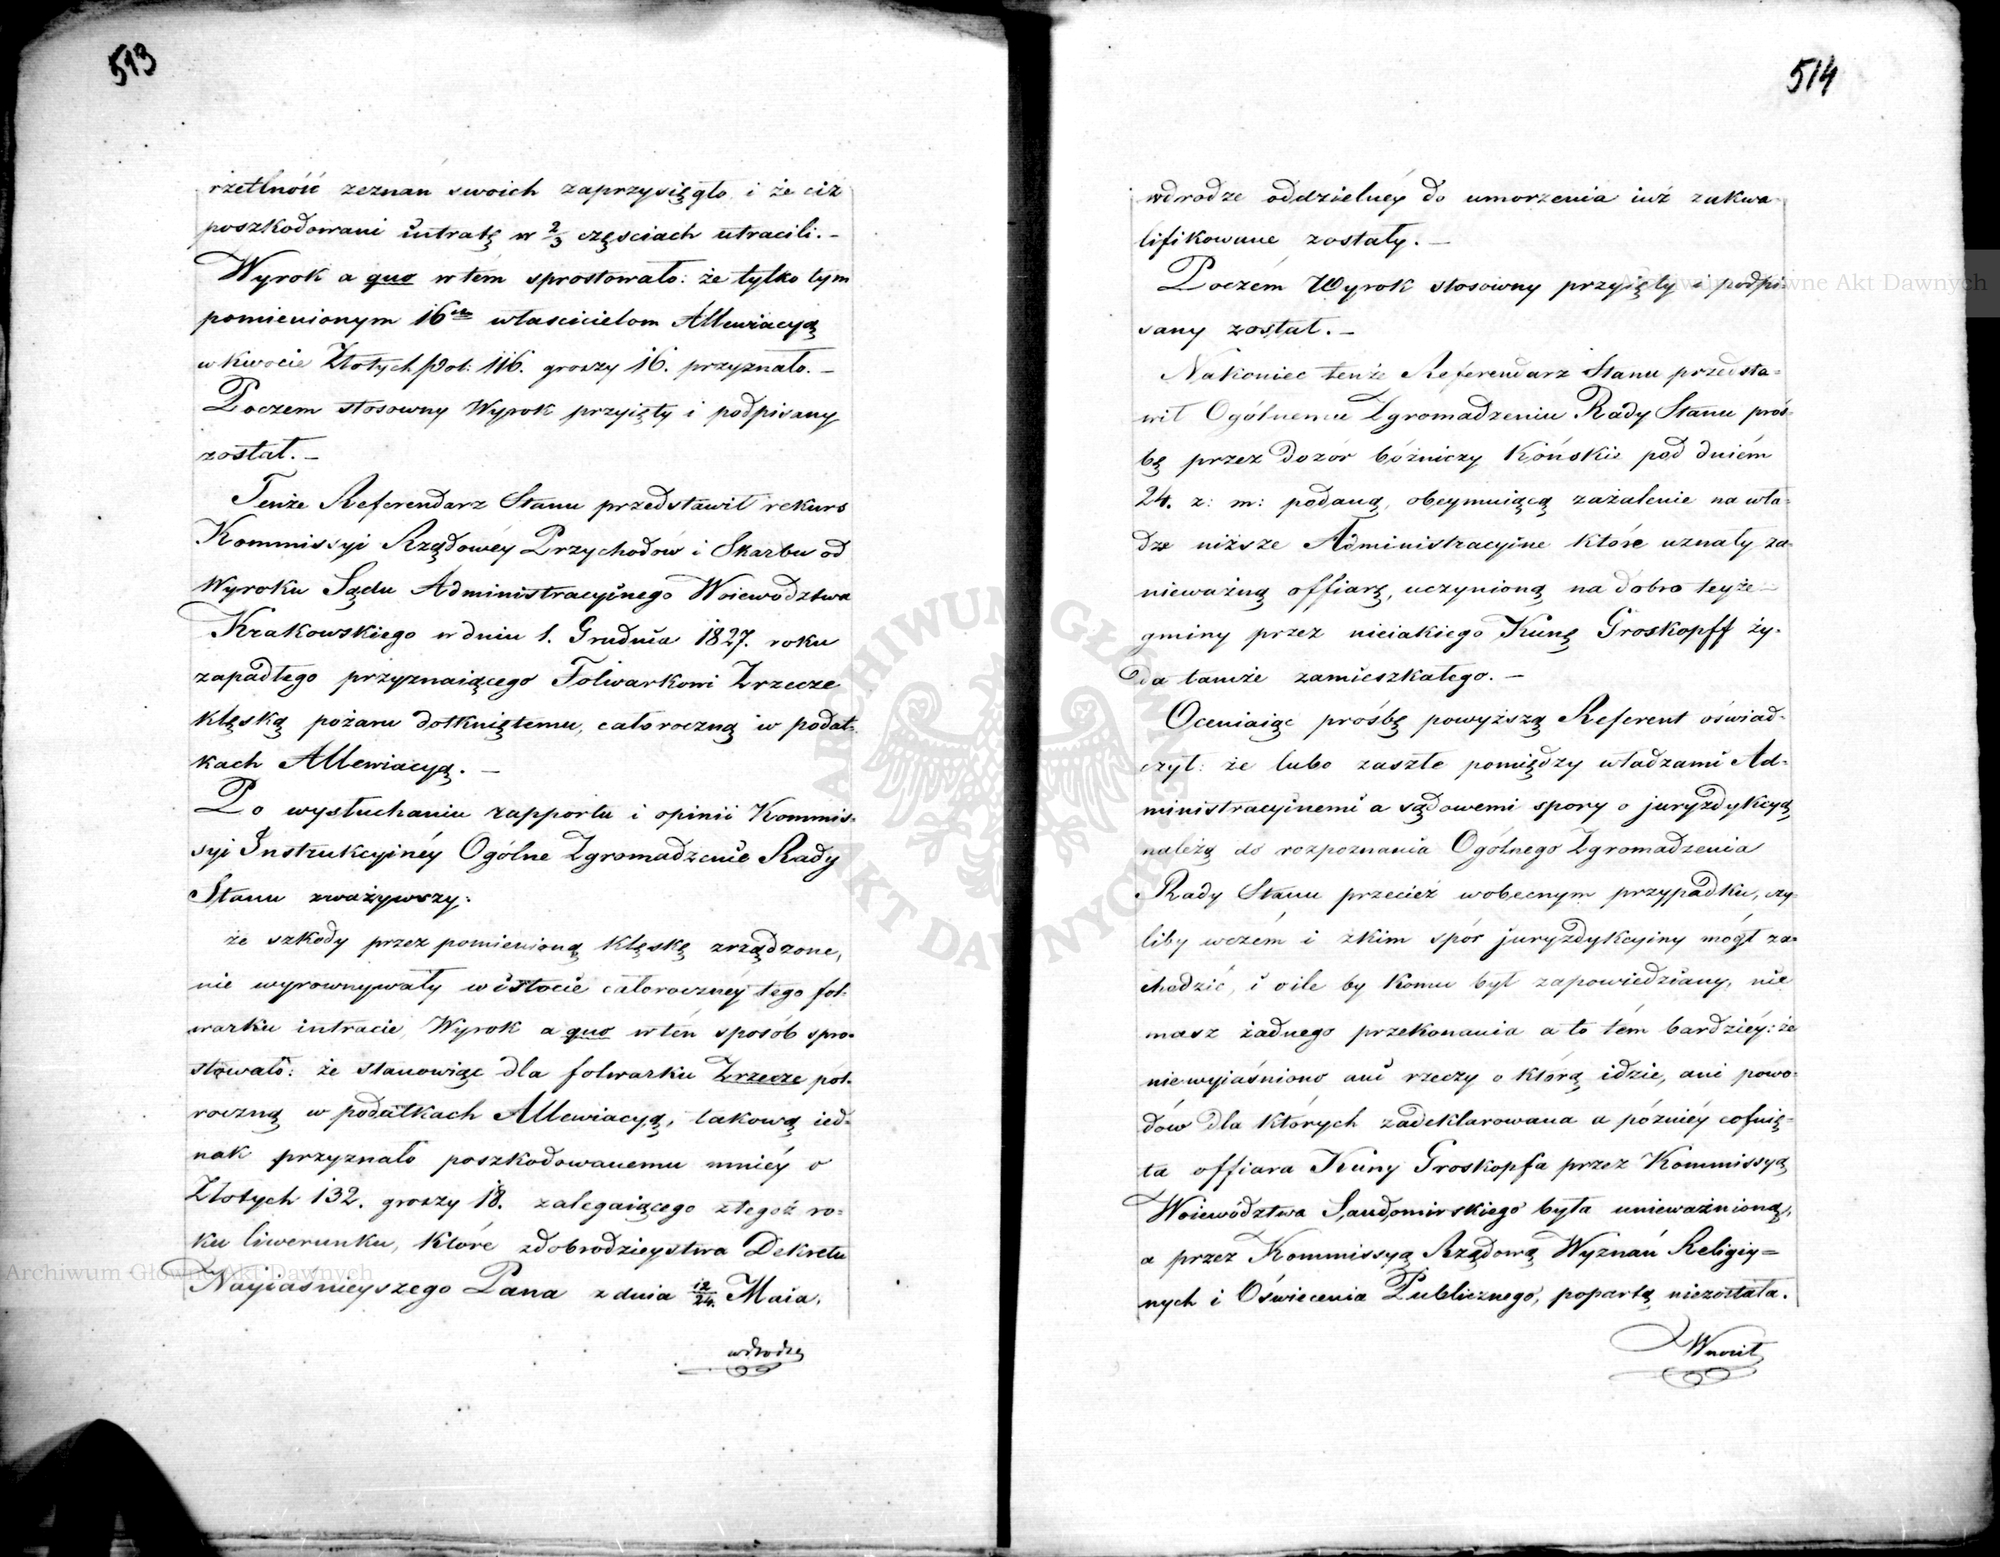 513
rzetlność zeznań swoich zaprzysięgło, i że ciż
poszkodowani intratę w 2/3 częsciach utracili. –
Wyrok a quo w tém sprostowało: że tylko tym
pomienionym 16tu włascicielom Allewiacyą
w kwocie Złotych Pol: 116. groszy 16. przyznało. –
Poczem stosowny Wyrok przyięty i podpisany
został. –
Tenże Referendarz Stanu przedstawił rekurs
Kommissyi Rządowéy Przychodów i Skarbu od
Wyroku Sądu Administracyinego Woiewództwa
Krakowskiego w dniu 1. Grudnia 1827. roku
zapadłego przyznaiącego Folwarkowi Zrzecze
klęską pożaru dotkniętemu, całoroczną w podat-
kach Allewiacyą. –
Po wysłuchaniu rapportu i opinii Kommis-
syi Instrukcyinéy Ogólne Zgromadzenie Rady
Stanu zważywszy:
że szkody przez pomienioną klęskę zrządzone,
nie wyrownywały w istocie całorocznéy tego fol-
warku intracie, Wyrok a quo w tén sposób spro-
stowało: że stanowiąc dla folwarku Zrzecze pół-
roczną w podatkach Allewiacyą, takową ied-
nak przyznało poszkodowanemu mniéy o
Złotych 132. groszy 18. zalegaiącego z tegoż ro-
ku liwerunku, które z dobrodzieystwa Dekretu
Nayiaśnieyszego Pana z dnia 12/24. Maia,
w drodze
514
w drodze oddzielnéy do umorzenia iuż zakwa-
lifikowane zostały. –
Poczém Wyrok stosowny przyięty i podpi-
sany został. –
Nakoniec tenże Referendarz Stanu przedsta-
wił Ogólnemu Zgromadzeniu Rady Stanu proś-
bę przez dozór bóżniczy Kóńskie pod dniém
24. z: m: podaną, obeymuiącą zażalenie na wła-
dze niższe Administracyine które uznały za
nieważną offiarę, uczynioną na dobro teyże
gminy przez nieiakiego Kunę Groskopff ży-
da tamże zamieszkałego. –
Oceniaiąc prośbę powyższą Referent oświad-
czył: że lubo zaszłe pomiędzy władzami Ad-
ministracyinemi a sądowemi spory o juryzdykcyą
należą do rozpoznania Ogólnego Zgromadzenia
Rady Stanu przecież w obecnym przypadku, czy-
liby w czém i z kim spór juryzdykcyiny mógł za-
chodzić, i o ile by komu był zapowiedziany, nie
masz żadnego przekonania a to tém bardziéy: że
niewyiaśniono ani rzeczy o którą idzie, ani powo-
dów dla których zadeklarowana a późniéy cofnię-
ta offiara Kuny Groskopfa przez Kommissyą
Woiewództwa Sandomirskiego była unieważnioną,
a przez Kommissyą Rządową Wyznań Religiy-
nych i Oświecenia Publicznego, popartą niezostała.
Wnosił
Archiwum Główne Akt Dawnych
Archiwum Główne Akt Dawnych
ARCHIWUM GŁÓWNE AKT DAWNYCH